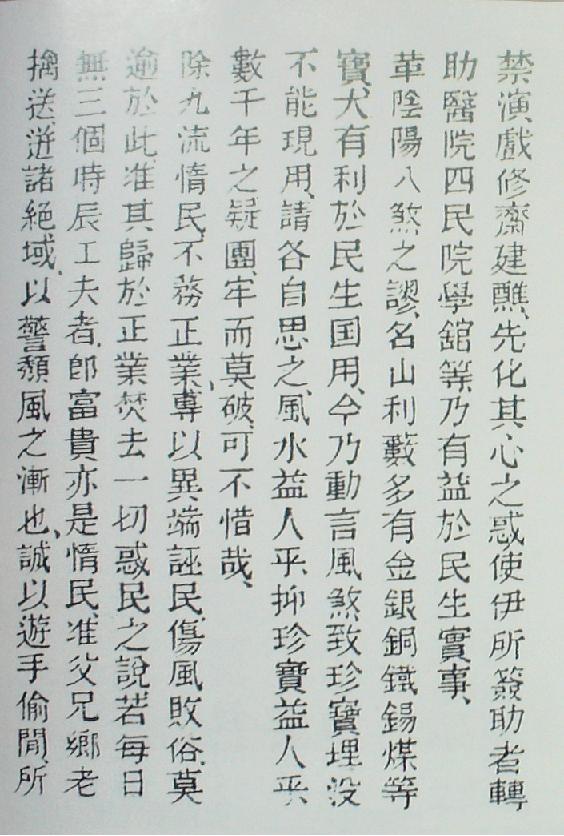 禁演戲修齋建醮、先化其心之惑使伊所簽助者轉
助醫院四民院學舘等、乃有益於民生實事、
革陰陽八煞之謬、名山利藪多有金銀銅鐵錫煤等
寶、大有利於民生国用、今乃動言風煞致珍寶埋没
不能現用、請各自思之、風水益人乎、抑珍寶益人乎、
數千年之疑團、牢而莫破、可不惜哉、
除九流惰民、不務正業、專以異端誣民、傷風敗俗、莫
逾於此、准其歸於正業焚去一切惑民之說若每日
無三個時辰工夫者、即富貴亦是惰民准父兄鄉老
擒送迸諸絕域、以警頹風之漸也、誠以遊手偷閒、所